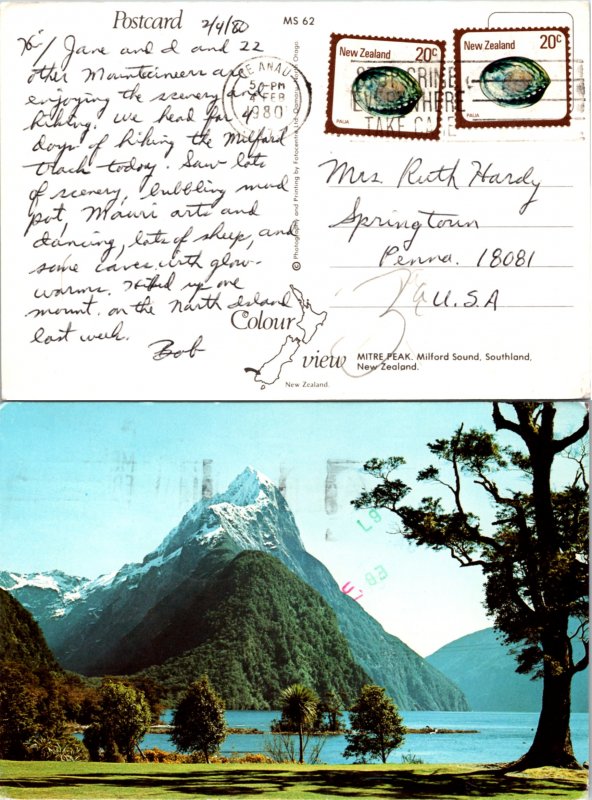 Postcard 2/4/80 MS 62
Hi / Jane and I and 22
other Mountaineers are
enjoying the scenery and
hiking. We head for 4
days of hiking the Milford
track today. Saw lots
of scenery, bubbling mud
pot, Mauri arts and
dancing, lots of sheep, and
some caves with glow-
worms. Hiked up one
mount. on the North Island
last week.
Bob
TE ANAU
30 PM
4 FEB
1980
New Zealand 20c
PAUA
New Zealand 20c
PAUA
EVERYWHERE
TAKE CARE
Mrs Ruth Hardy
Springtown
Penna. 18081
U.S.A
Colour
view
New Zealand.
MITRE PEAK. Milford Sound, Southland,
New Zealand.